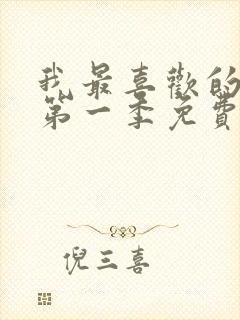 我最喜歡的
第一季免費
倪三喜